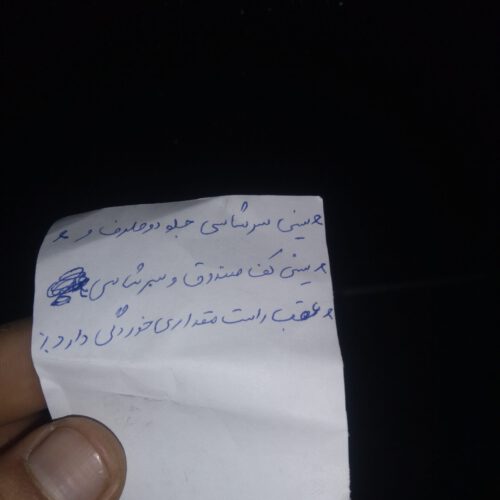 سینی سرشاسی جلو دو طرف و
سینی کف صندوق و سرشاسی
عقب راست مقداری خوردگی دارد